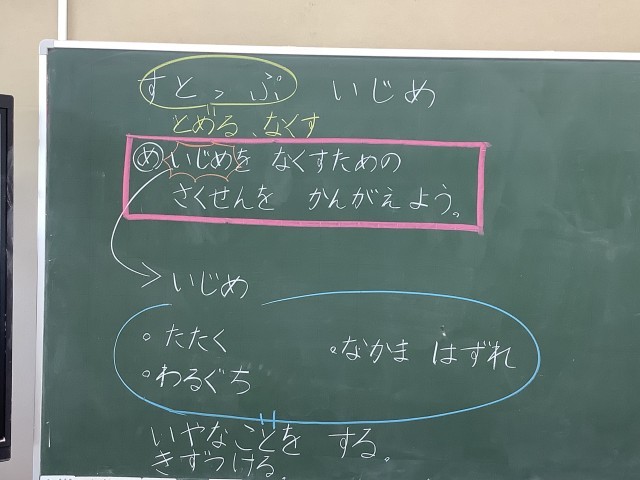 すとっぷ いじめ
とめる、なくす
め いじめを なくすための
さくせんを かんがえよう。
いじめ
・たたく ・なかま はずれ
・わるぐち
いやなことを する。
きずつける。